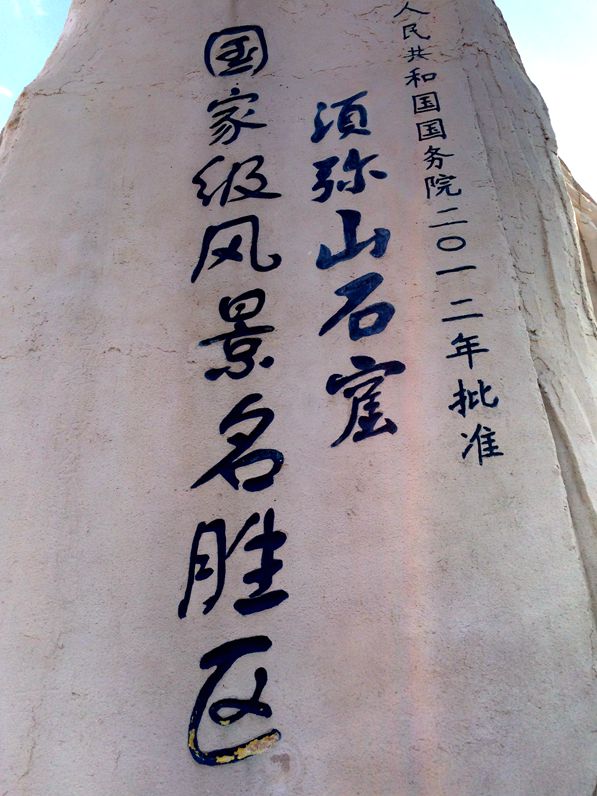 人民共和国国务院二〇一二年批准
须弥山石窟
国家级风景名胜区